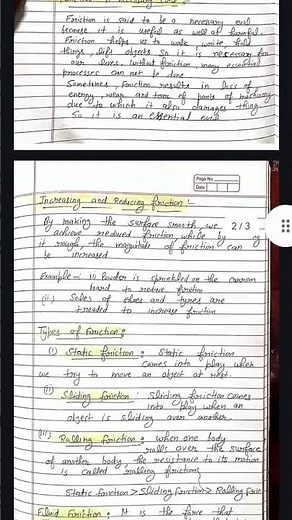 Friction is said to be a necessary evil
because it is useful as well as harmful.
Friction helps us to walk, write, hold
things, lift objects. So it is necessary for
our lives. Without friction, many essential
processes can not be done
Sometimes, friction results in loss of
energy, wear and tear of parts of machinery
due to which it also damages thing
So it is an essential evil
Page No.
Date
Increasing and Reducing friction :-
By making the surface smooth, we
2 / 3
achieve reduced friction while by
it rough, the magnitude of friction can
be increased
Example - (i) Powder is sprinkled on the carrom
board to reduce friction
(ii) Soles of shoes and tyres are
treaded to increase friction
Types of Friction :
(i) Static friction : Static friction
comes into play when
we try to move an object at rest.
(ii) Sliding friction : Sliding friction comes
into play when an
object is sliding over another.
(iii) Rolling friction : when one body
rolls over the surface
of another body the resistance to its motion
is called rolling friction
Static friction > Sliding friction > Rolling friction
Fluid Friction : It is the force that